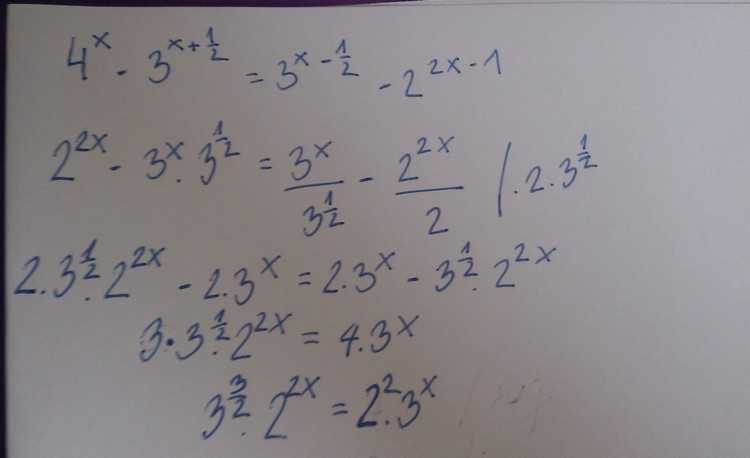 4^x - 3^{x+\frac{1}{2}} = 3^{x-\frac{1}{2}} - 2^{2x-1}
2^{2x} - 3^x . 3^{\frac{1}{2}} = \frac{3^x}{3^{\frac{1}{2}}} - \frac{2^{2x}}{2} / . 2 . 3^{\frac{1}{2}}
2 . 3^{\frac{1}{2}} . 2^{2x} - 2 . 3^x = 2 . 3^x - 3^{\frac{1}{2}} . 2^{2x}
3 • 3^{\frac{1}{2}} . 2^{2x} = 4 . 3^x
3^{\frac{3}{2}} . 2^{2x} = 2^2 . 3^x